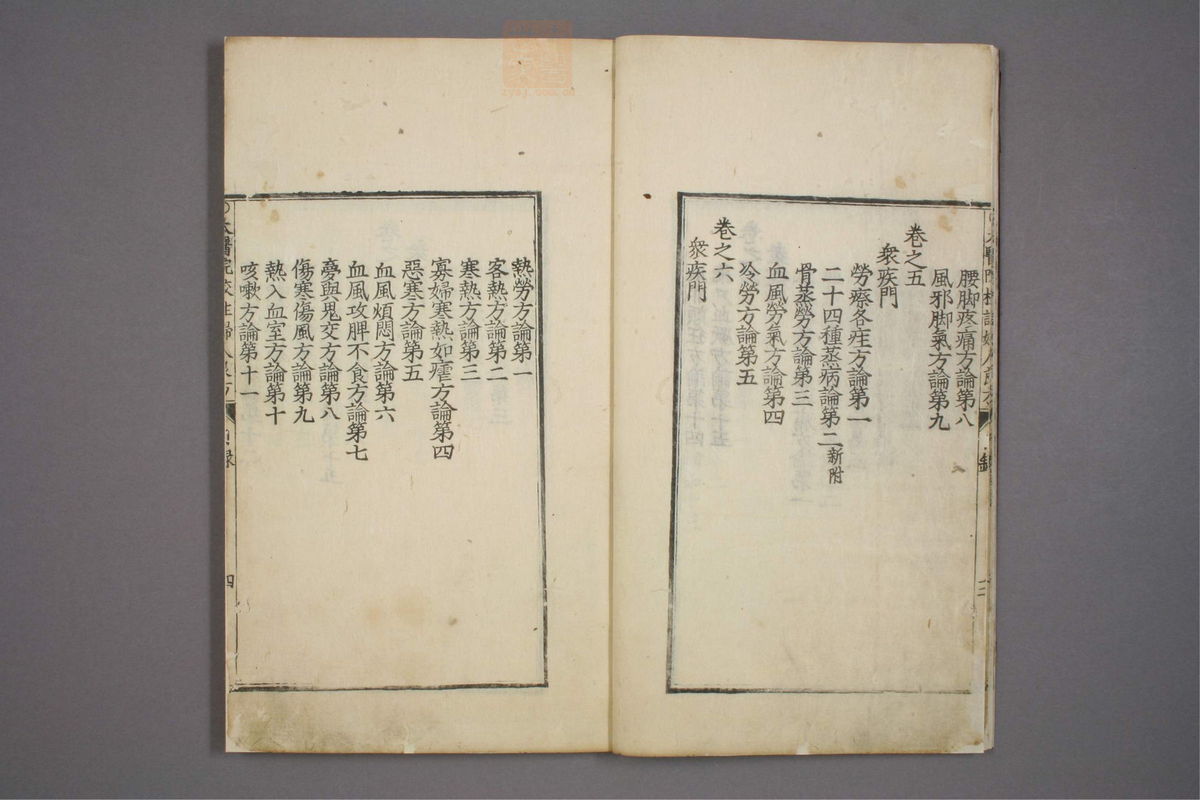 腰脚疼痛方論第八
風邪脚氣方論第九
卷之五
衆疾門
勞瘵各症方論第一
二十四種蒸病論第二新附
骨蒸勞方論第三
血風勞氣方論第四
冷勞方論第五
卷之六
衆疾門
熱勞方論第一
客熱方論第二
寒熱方論第三
寡婦寒熱如瘧方論第四
惡寒方論第五
血風煩悶方論第六
血風攻脾不食方論第七
夢與鬼交方論第八
傷寒傷風方論第九
熱入血室方論第十
咳嗽方論第十一
太醫院校註婦人良方
目録
四